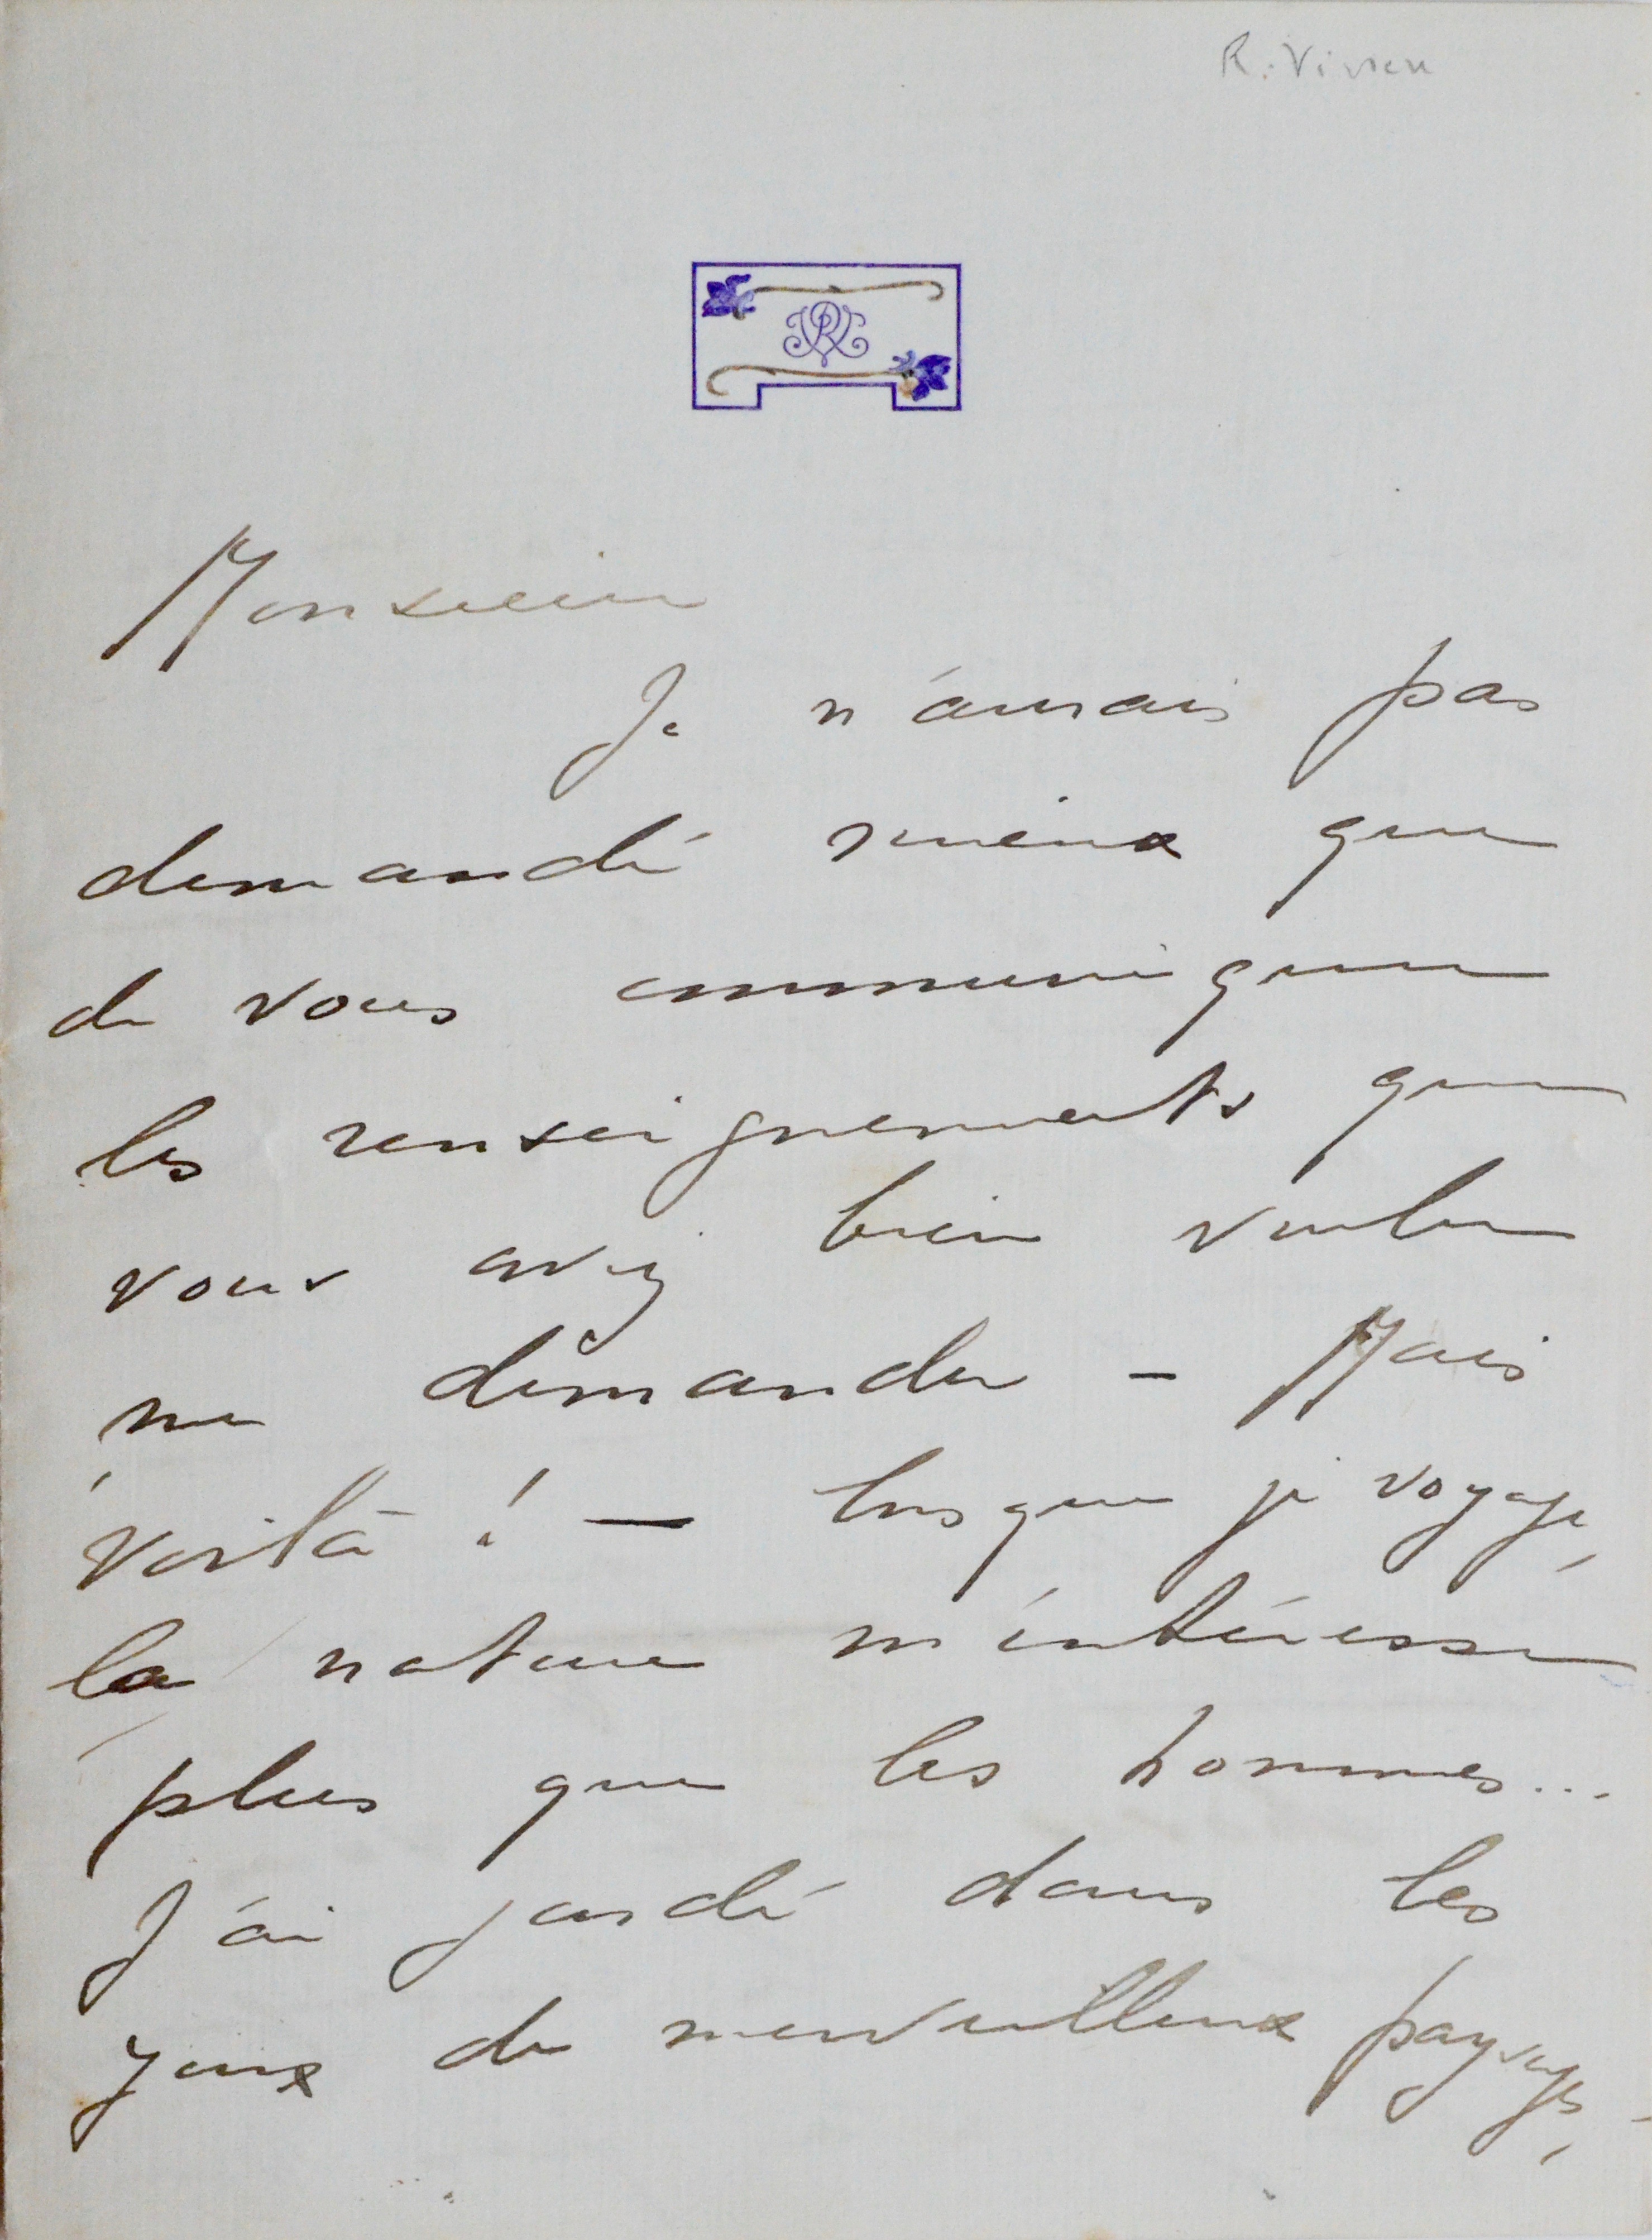 R. Vivien
RV
Monsieur
Je n'aurais pas
demandé mieux que
de vous communiquer
les renseignements que
vous avez bien voulu
me demander – Mais
voilà ! — lorsque je voyage,
la nature m'intéresse
plus que les hommes...
J'ai gardé dans les
yeux de merveilleux paysages,